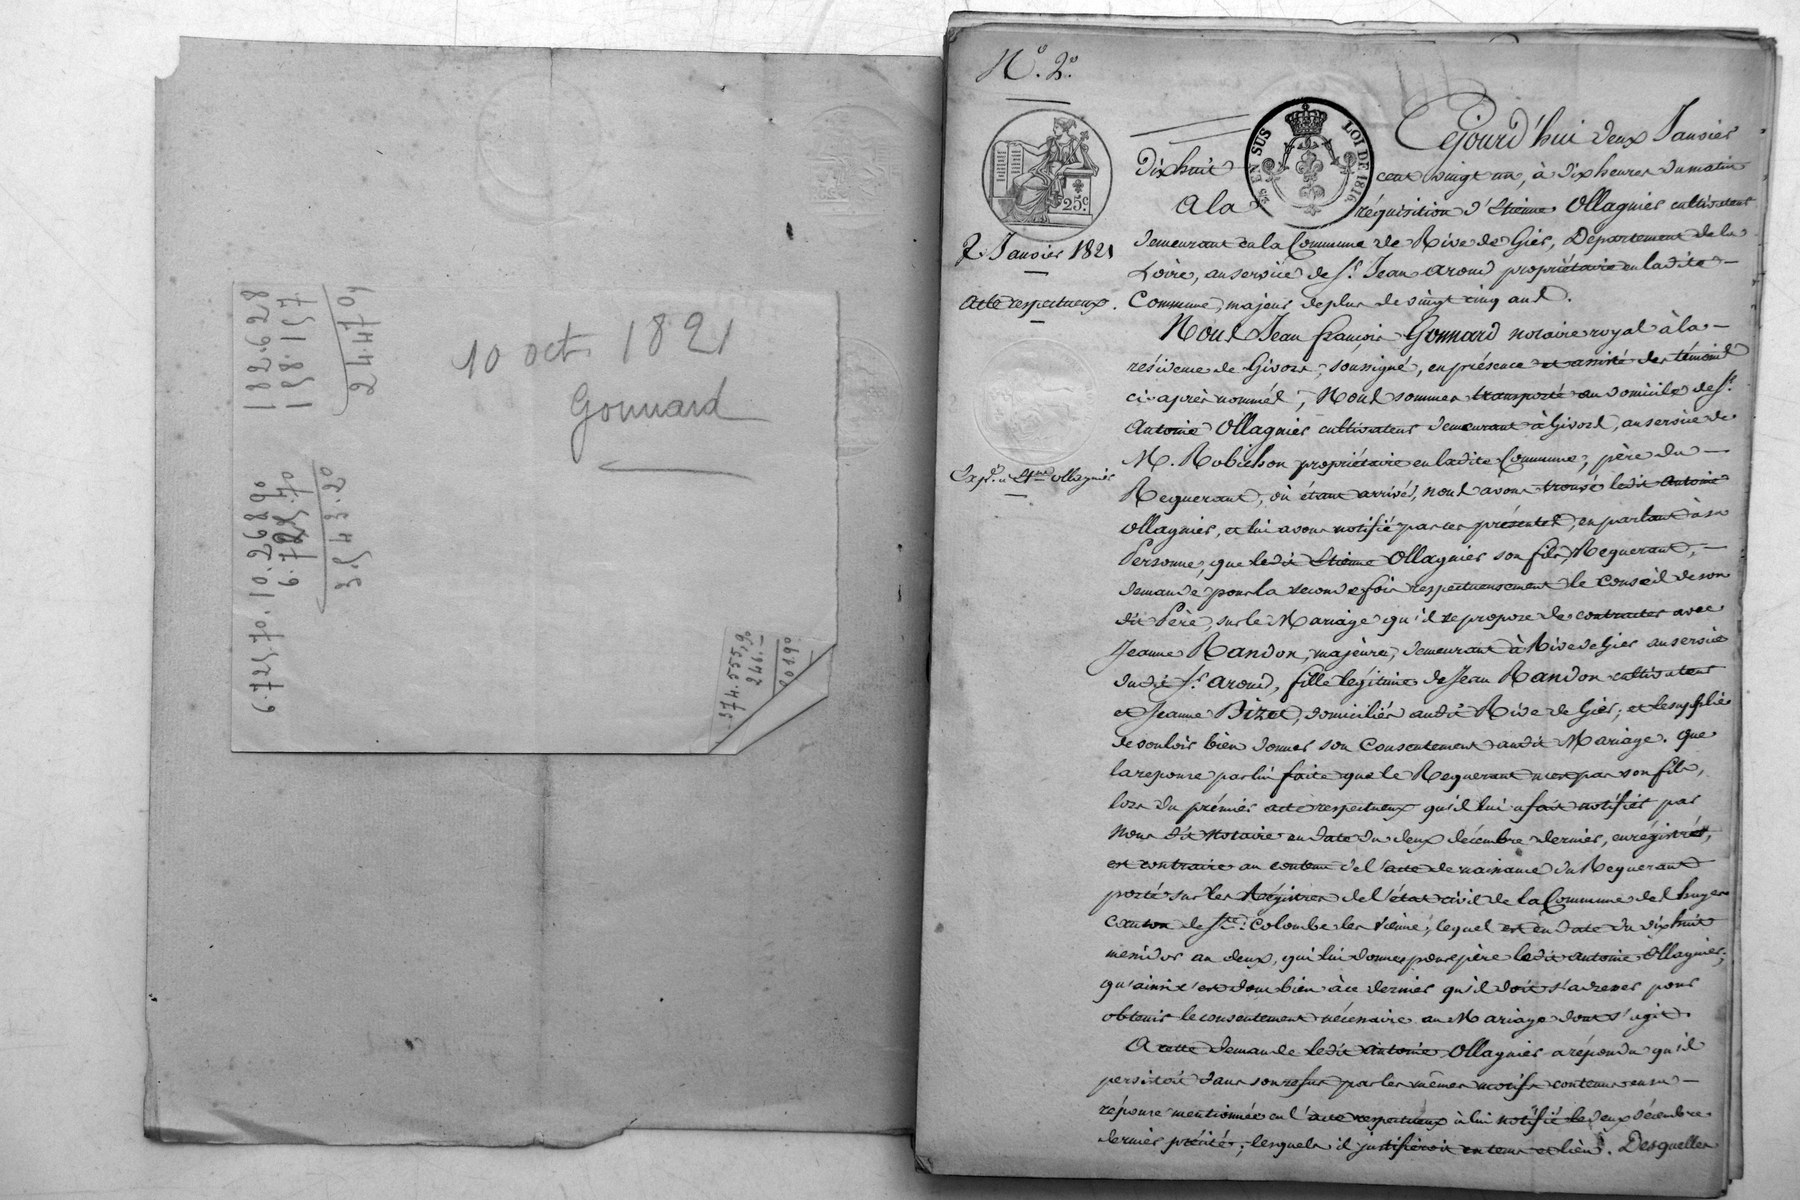 10 oct. 1821
Gonnard
182.628
158.157
24.470
6.725.70.10.268.90
6.725.70
3.543.20
6,555.475
642
00190
N.° 2.°
25c
EN SUS
LOI DE 1816
2 Janvier 1821
Acte respectueux.
Exp.on à Et.ne Ollagnier
Cejourd'hui deux Janvier
dix huit cent vingt un, à dix heures du matin
A la réquisition d'Etienne Ollagnier cultivateur
demeurant en la Commune de Rive de Gier, Département de la
Loire, au service de S.r Jean Aroud propriétaire en ladite
Commune, majeur de plus de vingt cinq ans.
Nous Jean françois Gonnard notaire royal à la
résidence de Givors, soussigné, en présence et assisté des témoins
ci-après nommés, Nous sommes transporté au domicile de S.r
Antoine Ollagnier cultivateur demeurant à Givors, au service de
M. Robichon propriétaire en ladite Commune, père du
Requerant, où étant arrivés, nous avons trouvé ledit Antoine
Ollagnier, et lui avons notifié par ces présentes, en parlant à sa
Personne, que ledit Etienne Ollagnier son fils, Requerant,
demande pour la seconde fois respectueusement le conseil de son
dit Père, sur le Mariage qu'il se propose de contracter avec
Jeanne Randon, majeure, demeurant à Rive de Gier au service
dudit S.r Aroud, fille légitime de Jean Randon cultivateur
et Jeanne Bizet, domiciliés audit Rive de Gier; et le supplie
de vouloir bien donner son Consentement audit Mariage. que
la reponse par lui faite que le Requerant n'est pas son fils,
lors du prémier acte respectueux qu'il lui a fait notifier par
nous dit notaire en date du deux décembre dernier, enrégistré,
est contraire au contenu de l'acte de naissance du Requerant
porté sur les Régistres de l'état civil de la Commune de
Canton de S.te Colombe les Vienne; lequel est en date du dix huit
messidor an deux, qui lui donne pour père ledit Antoine Ollagnier;
qu'ainsi c'est donc bien à ce dernier qu'il doit s'adresser pour
obtenir le consentement nécessaire au Mariage dont s'agit.
A cette demande ledit Antoine Ollagnier a répondu qu'il
persistoit dans son refus par les mêmes motifs contenus en sa
réponse mentionnée en l'acte respectueux à lui notifié le deux décembre
dernier précité, lesquels il justifieroit en tems et lieu. Desquelles